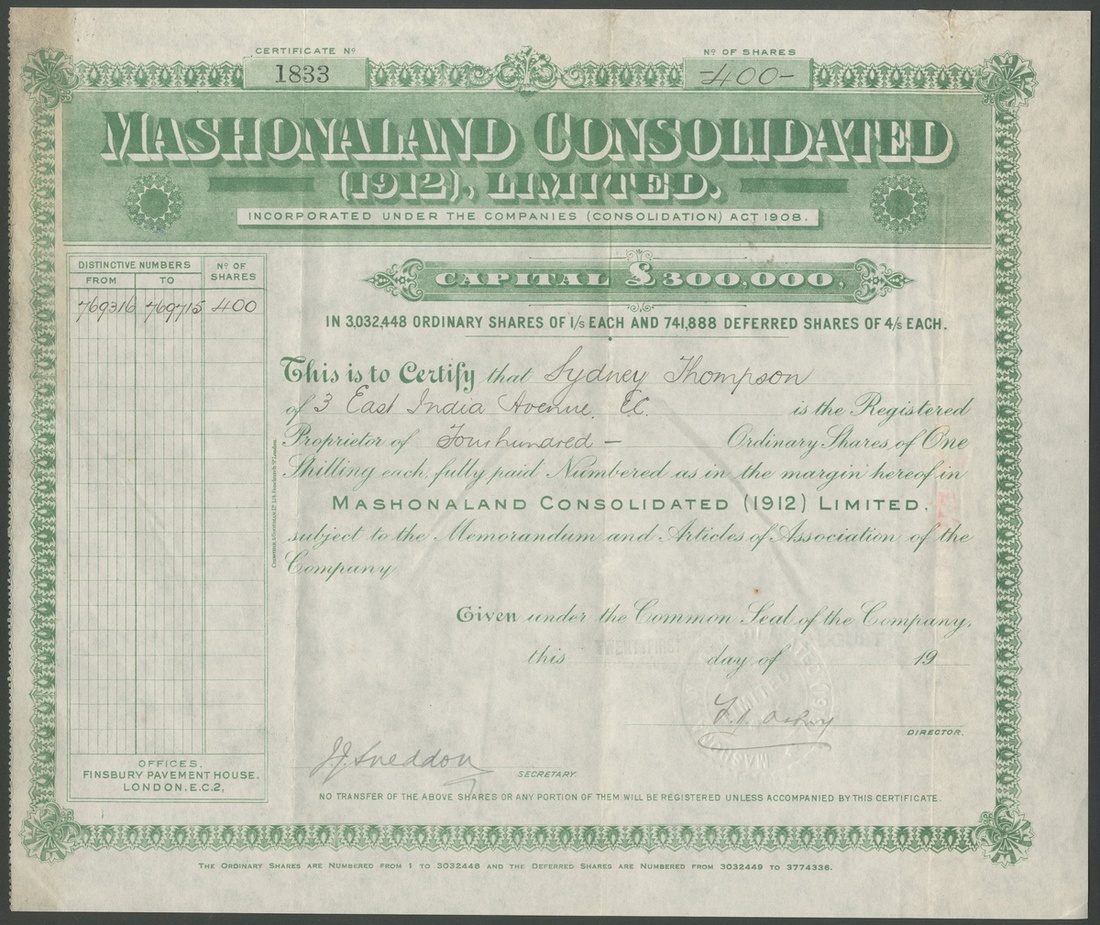 CERTIFICATE Nº
1833
Nº OF SHARES
-400-
MASHONALAND CONSOLIDATED
(1912), LIMITED.
INCORPORATED UNDER THE COMPANIES (CONSOLIDATION) ACT 1908.
DISTINCTIVE NUMBERS
Nº OF SHARES
FROM TO
769316 769715 400
CAPITAL £300,000,
IN 3,032,448 ORDINARY SHARES OF 1/s EACH AND 741,888 DEFERRED SHARES OF 4/s EACH.
This is to Certify that Sydney Thompson
of 3 East India Avenue. E.C. is the Registered
Proprietor of Fourhundred - Ordinary Shares of One
Shilling each, fully paid Numbered as in the margin hereof in
MASHONALAND CONSOLIDATED (1912) LIMITED,
subject to the Memorandum and Articles of Association of the
Company
Given under the Common Seal of the Company,
this day of 19
DIRECTOR.
J.J. Sneddon
SECRETARY.
OFFICES.
FINSBURY PAVEMENT HOUSE.
LONDON. E.C.2,
NO TRANSFER OF THE ABOVE SHARES OR ANY PORTION OF THEM WILL BE REGISTERED UNLESS ACCOMPANIED BY THIS CERTIFICATE.
THE ORDINARY SHARES ARE NUMBERED FROM 1 TO 3032448 AND THE DEFERRED SHARES ARE NUMBERED FROM 3032449 TO 3774336.